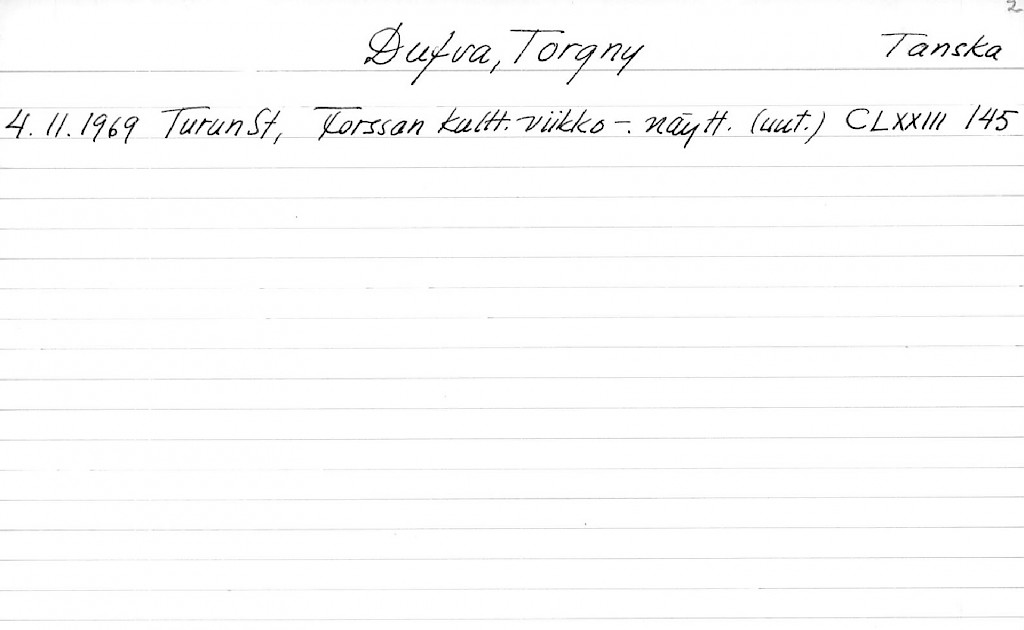 2
Dufva, Torgny Tanska
4.11.1969 TurunSt, Forssan kultt. viikko -. näytt. (uut.) CLXXIII 145